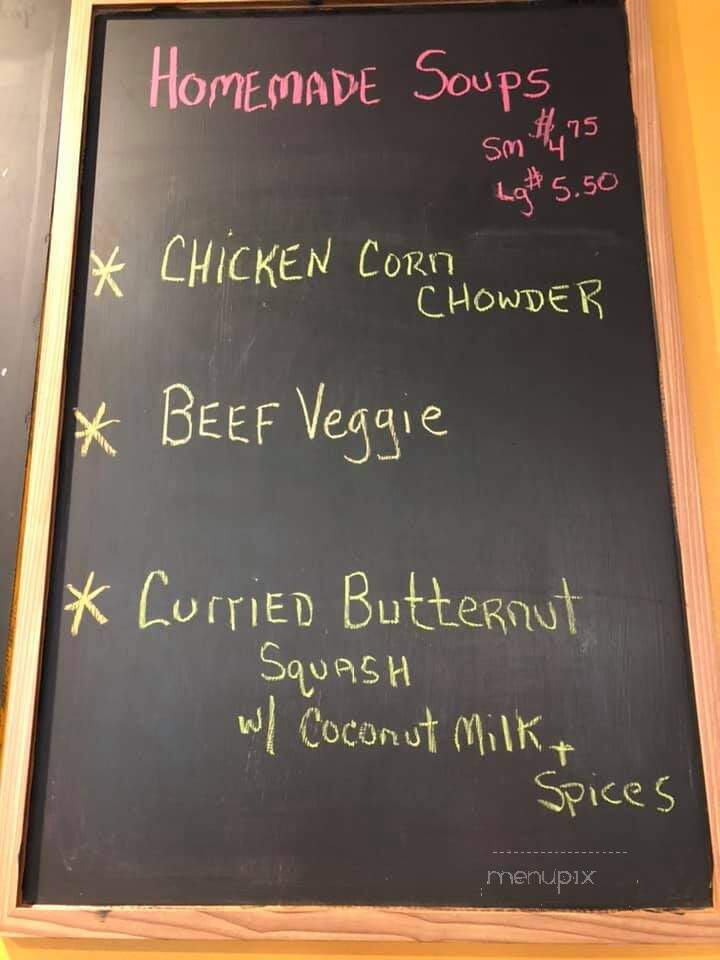 HOMEMADE SOUPS
Sm $4.75
Lg $5.50
* CHiCKEN CORn
CHOWDER
* BEEF Veggie
* CurriED ButtERnut
SQUASH
w/ Coconut Milk +
Spices
menupix